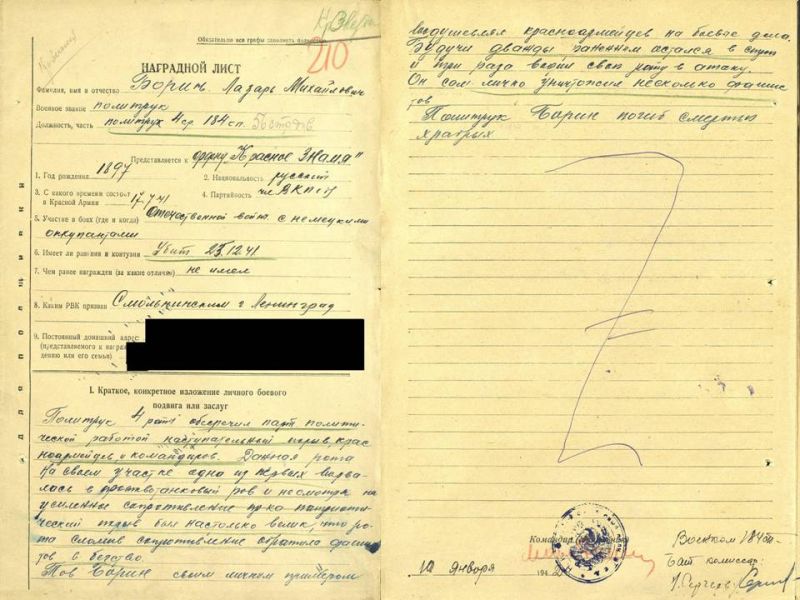 Обязательно все графы заполнять
210
НАГРАДНОЙ ЛИСТ
Фамилия, имя и отчество Борин Лазарь Михайлович
Военное звание политрук
Должность, часть политрук 4ср 184 сп.
Представляется к ордену "Красное Знамя"
1. Год рождения 1897 2. Национальность русский
3. С какого времени состоит в Красной Армии 17.7.41 4. Партийность чл ВКП(б)
5. Участие в боях (где и когда) Отечественной войне с немецкими
оккупантами
6. Имеет ли ранения и контузии Убит 25.12.41
7. Чем ранее награжден (за какие отличия) не имел
8. Каким РВК призван Смольнинским г Ленинград
9. Постоянный домашний адрес
(представляемого к
дению или его семьи)
I. Краткое, конкретное изложение личного боевого
подвига или заслуг
Политрук 4 роты обеспечил парт полити-
ческой работой наступательный порыв, крас
ноармейцев и командиров. Данная рота
на своем участке одна из первых ворва-
лась в противотанковый ров и несмотря на
усиленное сопротивление пр-ка патриоти-
ческий порыв был настолько велик, что ро-
та сломив сопротивление обратила фашис
тов в бегство.
Тов Борин своим личным примером
воодушевлял красноармейцев на боевые дела.
Будучи дважды раненным остался в строю
и три раза водил свою роту в атаку.
Он сам лично уничтожил несколько фашис
тов
Политрук Борин погиб смертью
храбрых
Командир
10 января 194
Военком 184 сп
Бат комиссар